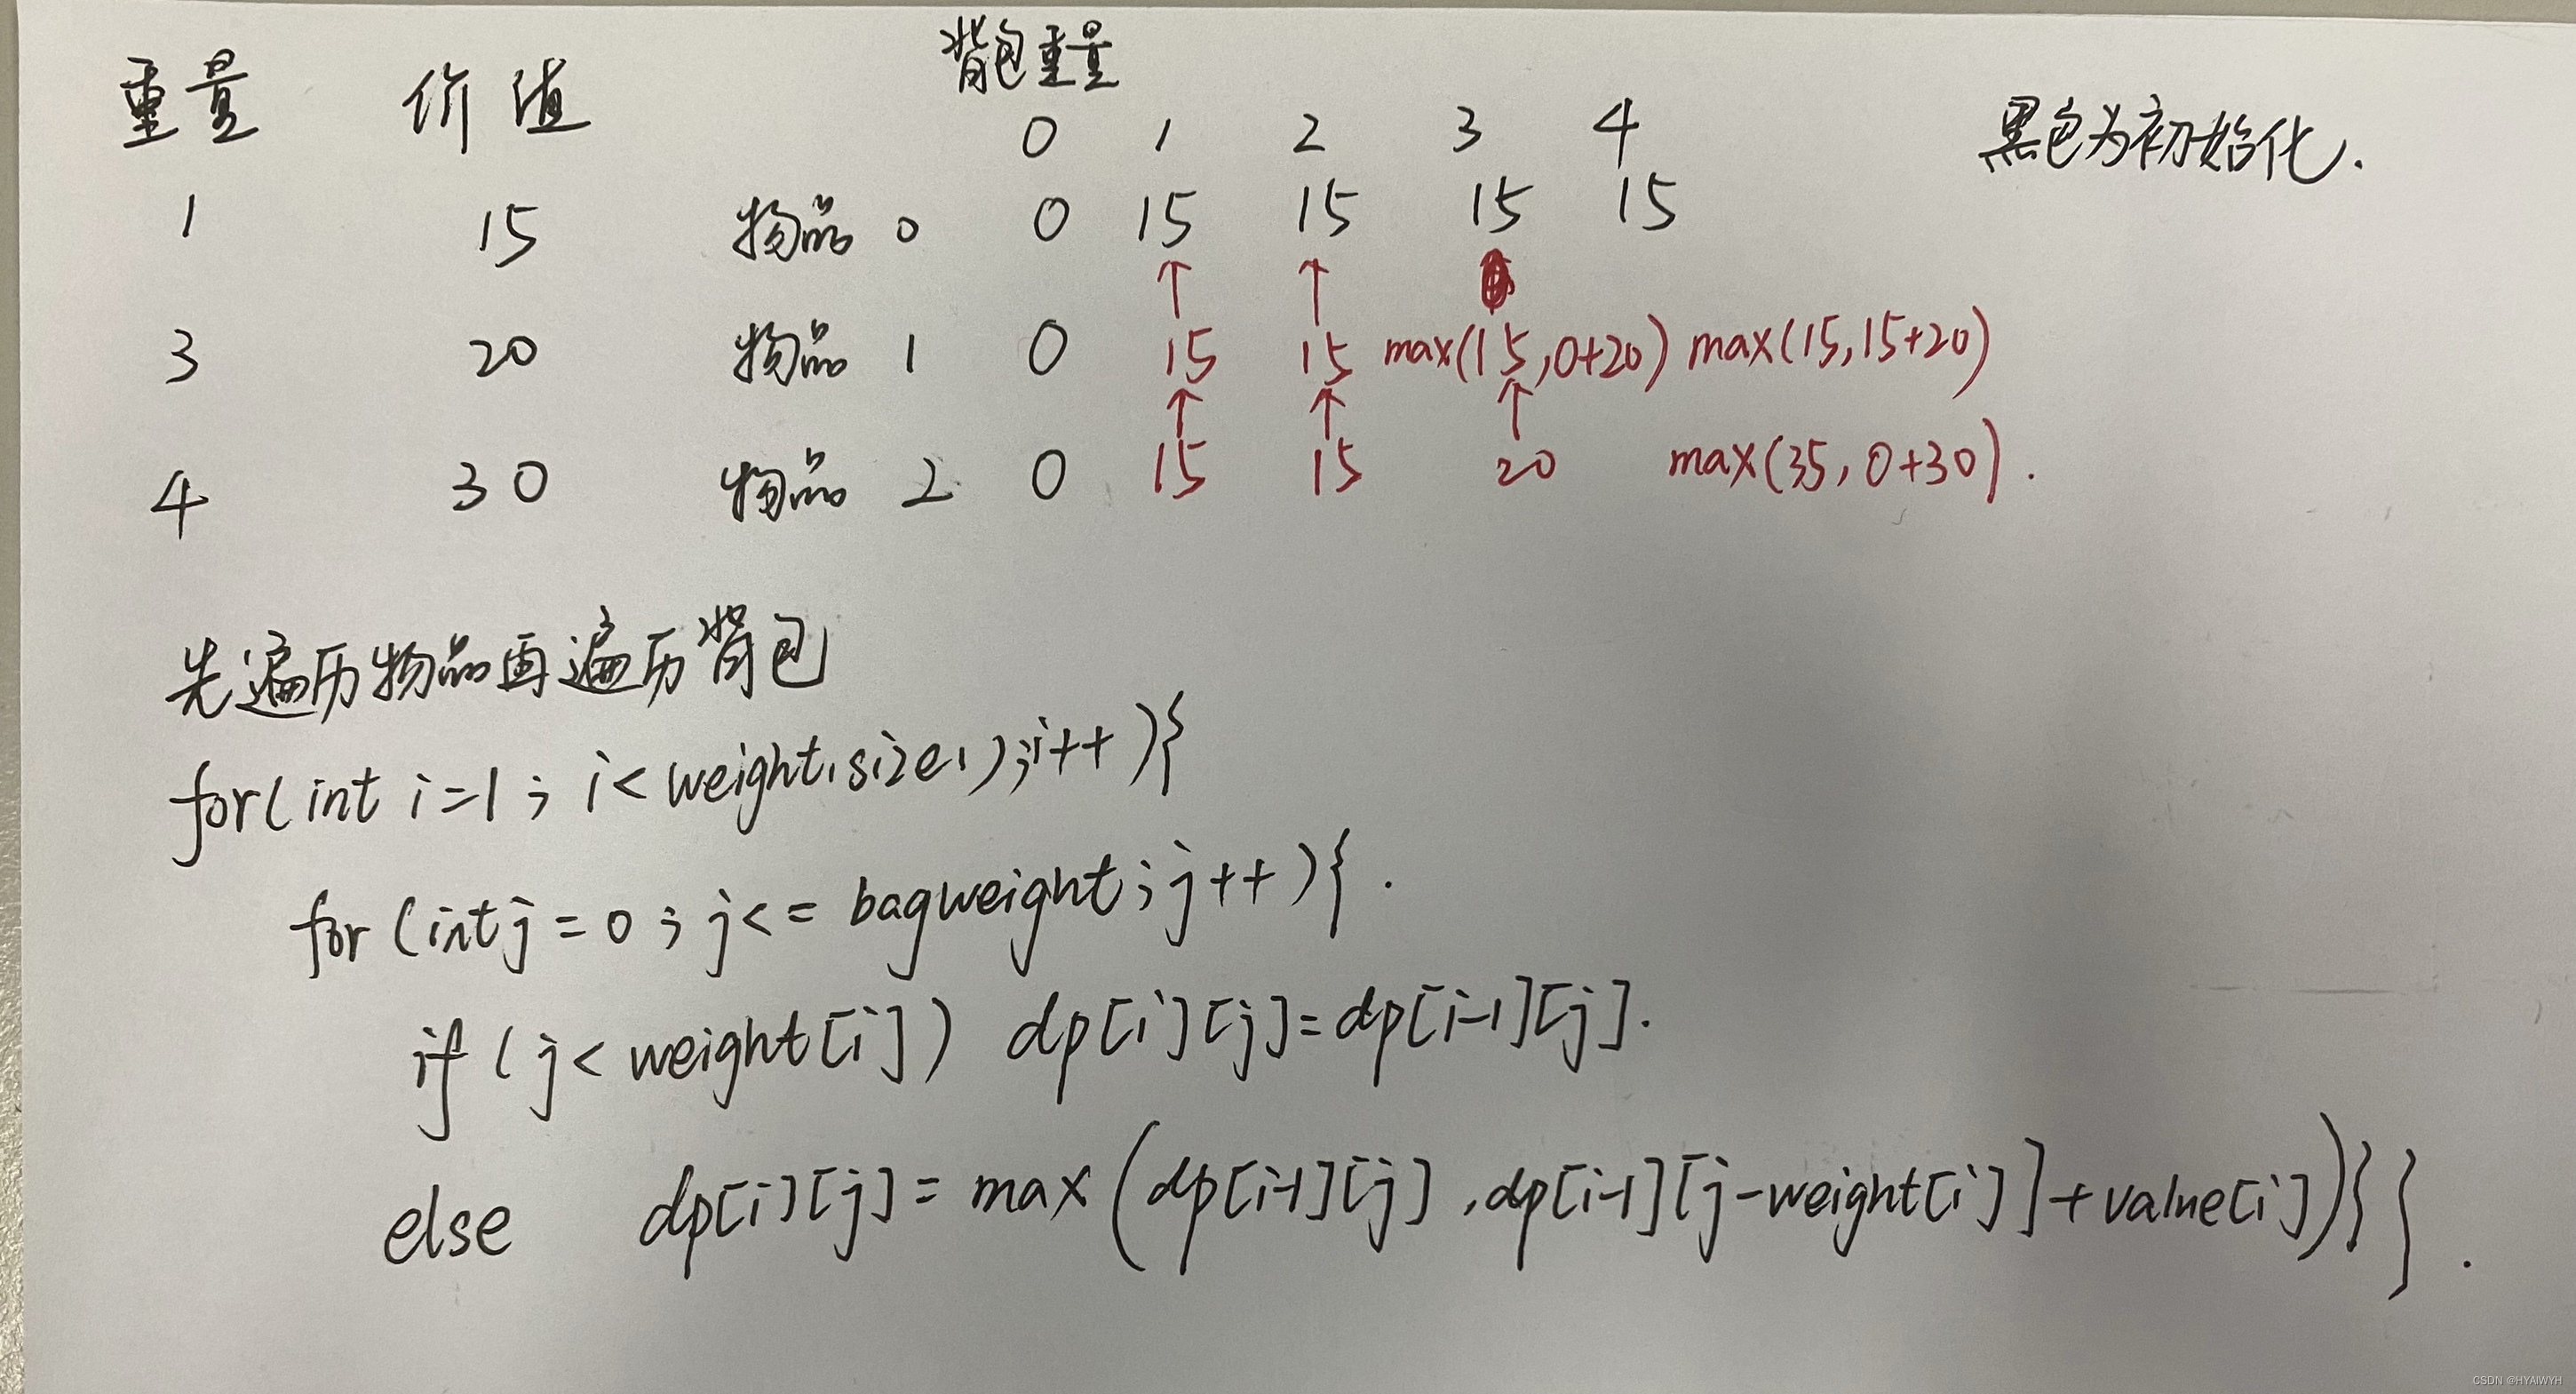 背包重量
重量 价值 0 1 2 3 4 黑色为初始化.
1 15 物品 0 0 15 15 15 15
↑ ↑
3 20 物品 1 0 15 15 max(15,0+20) max(15,15+20)
↑ ↑ ↑
4 30 物品 2 0 15 15 20 max(35,0+30).
先遍历物品再遍历背包
for(int i=1; i<weight.size();i++){
for(int j=0; j<=bagweight; j++){.
if(j<weight[i]) dp[i][j]=dp[i-1][j].
else dp[i][j]=max(dp[i-1][j],dp[i-1][j-weight[i]]+value[i])}}.
CSDN @HYAIWYH